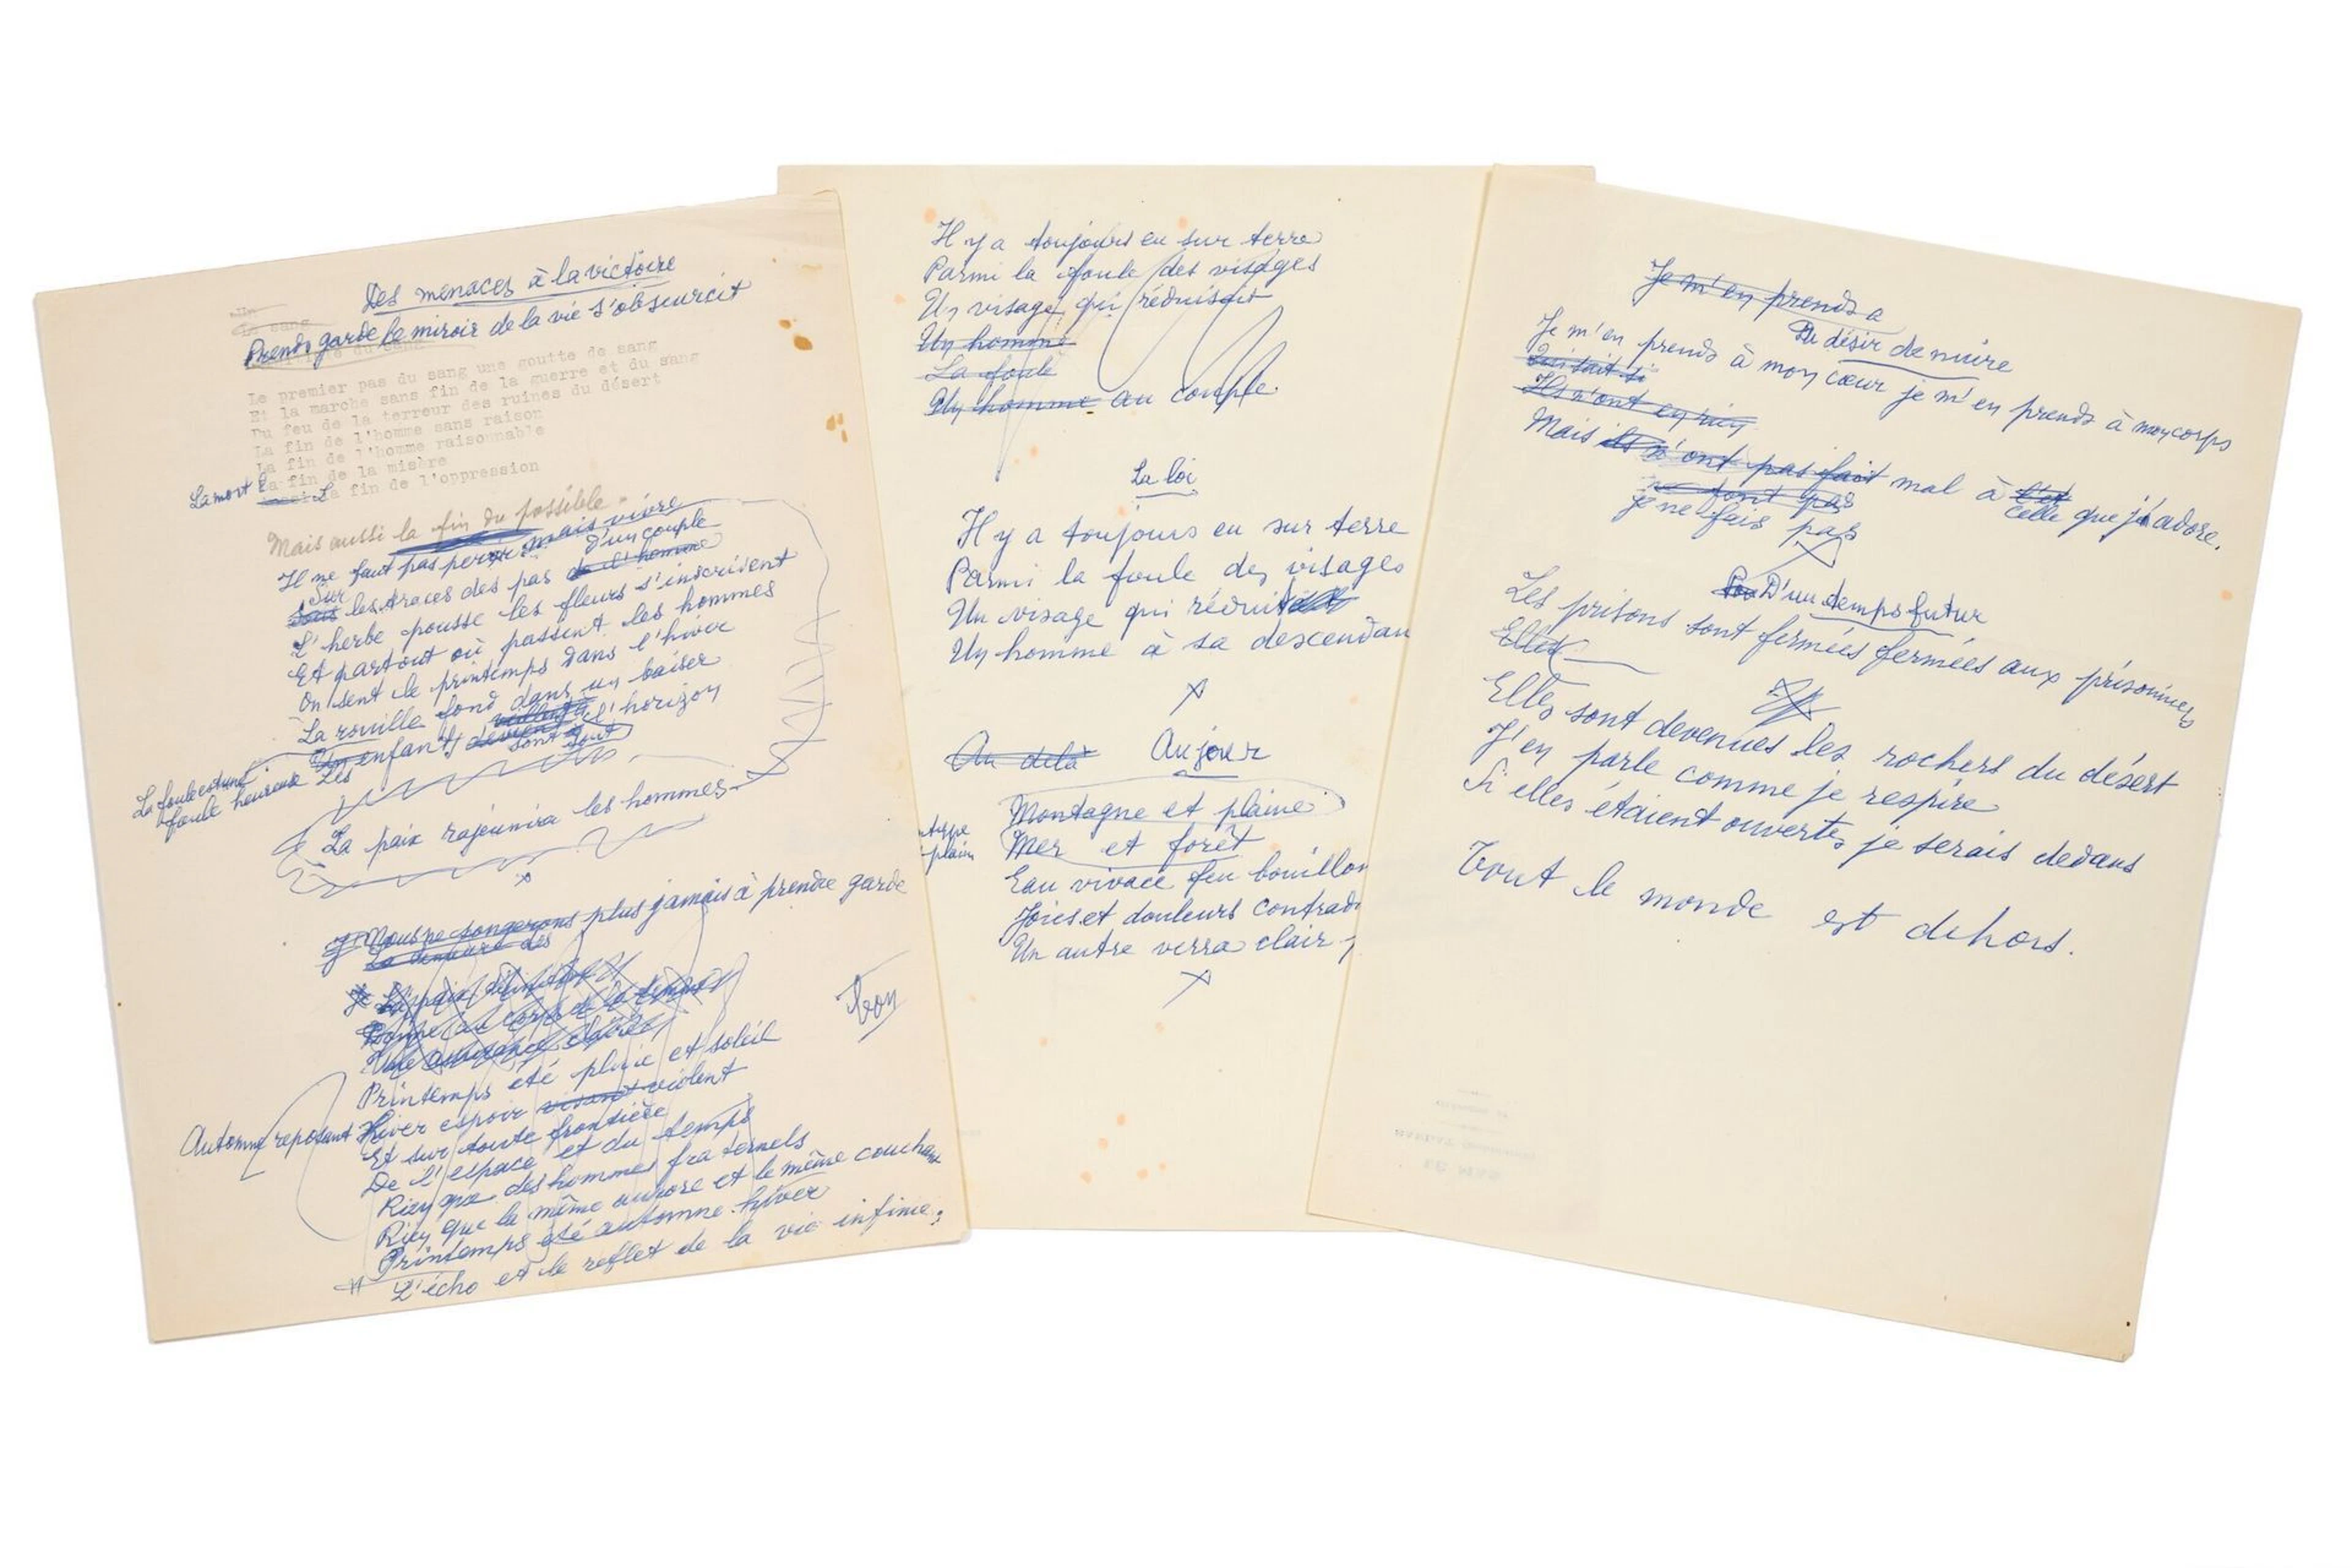 Des menaces à la victoire
Prends garde le miroir de la vie s'obscurcit
Le premier pas du sang une goutte de sang
Et la marche sans fin de la guerre et du sang
Du feu de la terreur des ruines du désert
La fin de l'homme sans raison
La fin de l'homme raisonnable
La mort La fin de la misère
La fin de l'oppression
Mais aussi la fin du possible
Il ne faut pas périr mais vivre
d'un couple
Sur
sous les traces des pas de l'homme
L'herbe pousse les fleurs s'inscrivent
Et partout où passent les hommes
On sent le printemps dans l'hiver
La rouille fond dans un baiser
Un enfants l'horizon
sont tout
La foule est une
foule heureuse Les
La paix rajeunira les hommes
x
Nous ne songerons plus jamais à prendre garde
Printemps été pluie et soleil
bon
Automne reposant Hiver espoir vivant violent
Et sur toute frontière
De l'espace et du temps
Rien que des hommes fraternels
Rien que la même aurore et le même couchant
Printemps été automne hiver
L'écho et le reflet de la vie infinie.
Il y a toujours eu sur terre
Parmi la foule des visages
Un visage qui réduisait
Un homme
La foule
Un homme au couple.
La loi
Il y a toujours eu sur terre
Parmi la foule des visages
Un visage qui réduit
Un homme à sa descendan
x
Au delà Au jour
Montagne et plaine
Mer et forêt
plain
Eau vivace feu bouillon
Joies et douleurs contradi
Un autre verra clair
x
Je m'en prends a
Du désir de nuire
Je m'en prends à mon cœur je m'en prends à mon corps
Ils n'ont en rien
Mais ils n'ont pas fait mal à celle que j'adore.
ne font pas
je ne fais pas
x
D'un temps futur
Les prisons sont fermées fermées aux prisonniers
Elles
Elles sont devenues les rochers du désert
J'en parle comme je respire
Si elles étaient ouvertes je serais dedans
Tout le monde est dehors.